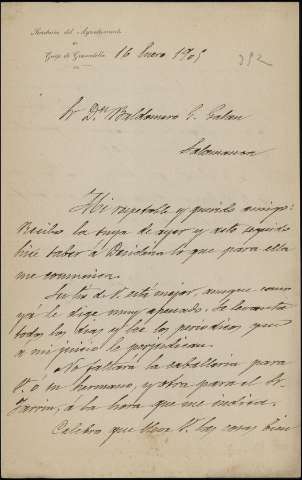 Secretaría del Ayuntamiento
de
Guijo de Granadilla
16 Enero 1905
Sr Dn Baldomero G. Galan
Salamanca
Mi respetable y querido amigo:
Recibo la tuya de ayer y acto seguido
hice saber á Desideria lo que para ella
me comunica.
Su tio de V. está mejor, aunque como
yá le dige muy apurado. Se levanta
todos los dias y lee los periodicos que
a mi juicio le perjudican.
No faltará la caballeria para
V. o su hermano, y otra para el Sr
á la hora que me indica.
Celebro que lleve V. las cosas bien